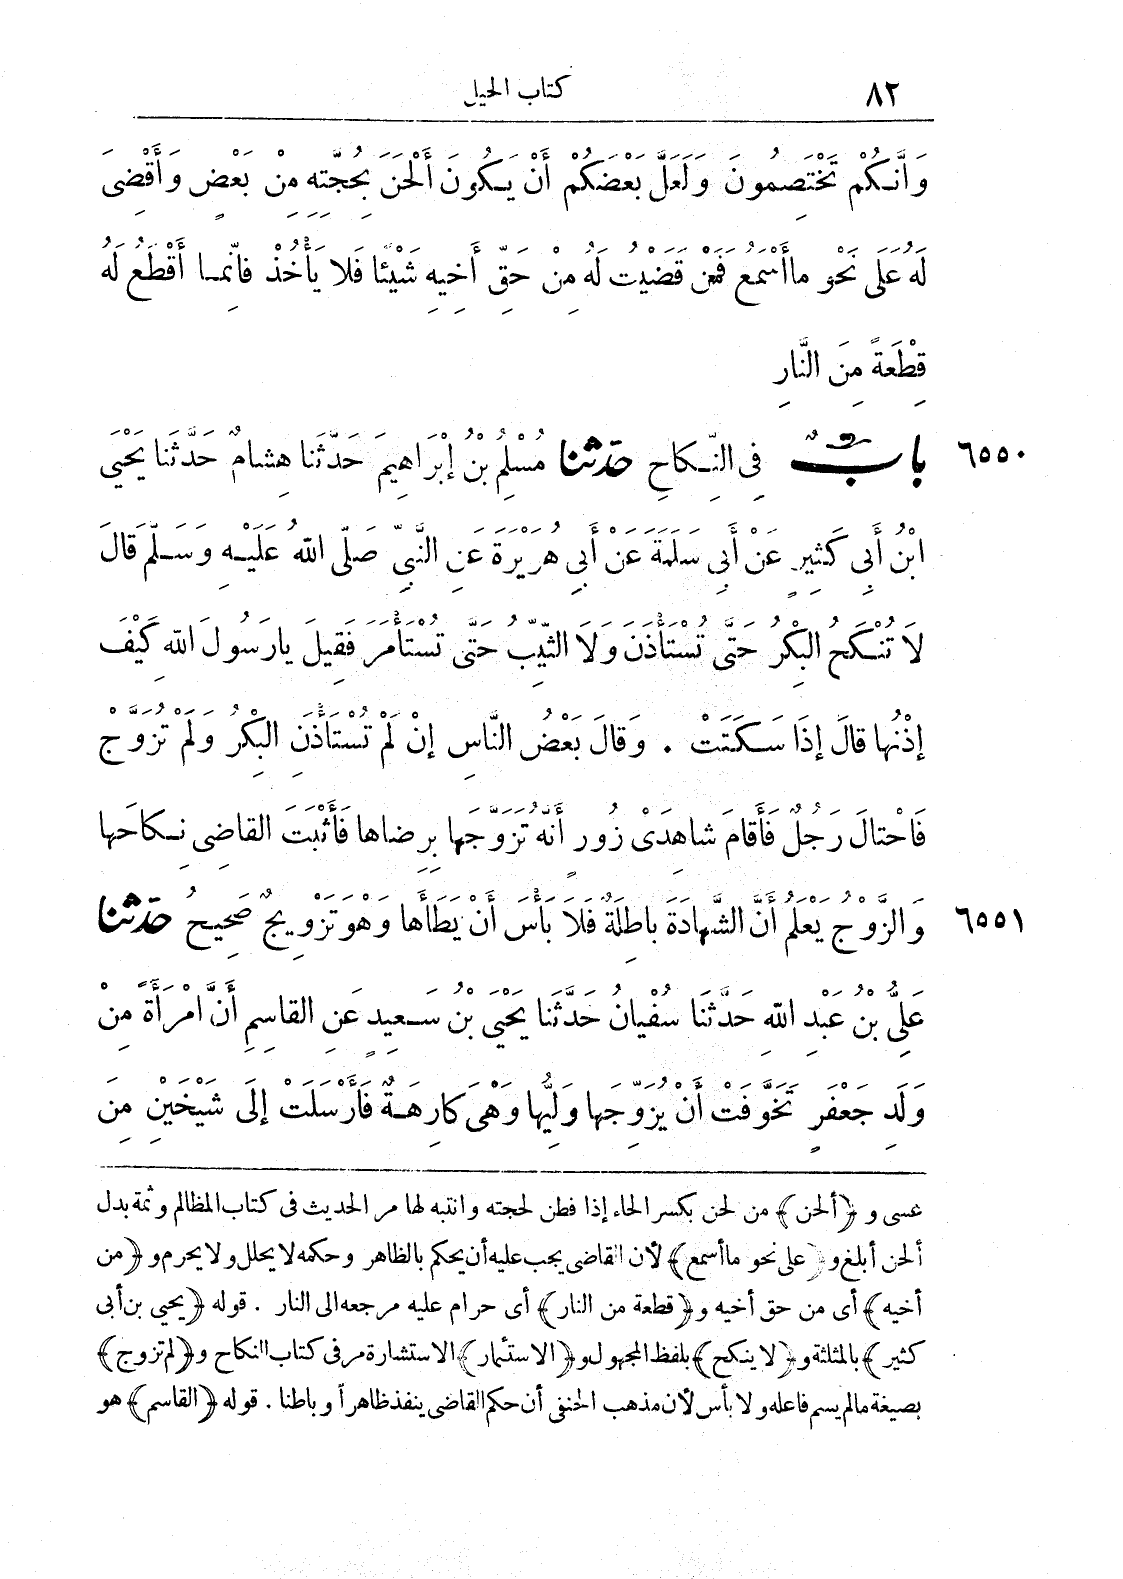 ٨٢ كتاب الحيل
وَأَنَّكُمْ تَخْتَصِمُونَ وَلَعَلَّ بَعْضَكُمْ أَنْ يَكُونَ أَلْحَنَ بِحُجَّتِهِ مِنْ بَعْضٍ وَأَقْضِىَ
لَهُ عَلَى نَحْوِ ما أَسْمَعُ فَمَنْ قَضَيْتُ لَهُ مِنْ حَقِّ أَخِيهِ شَيْئًا فَلا يَأْخُذْ فَانَّمَا أَقْطَعُ لَهُ
قِطْعَةً مِنَ النَّارِ
٦٥٥٠ بابٌ فِى النِّكاحِ حدثنا مُسْلِمُ بْنُ إِبْرَاهِيمَ حَدَّثَنا هِشامٌ حَدَّثَنا يَحْيَى
ابْنُ أَبِى كَثِيرٍ عَنْ أَبِى سَلَمَةَ عَنْ أَبِى هُرَيْرَةَ عَنِ النَّبِىِّ صَلَّى اللهُ عَلَيْهِ وَسَلَّمَ قالَ
لَا تُنْكَحُ البِكْرُ حَتَّى تُسْتَأْذَنَ وَلَا الثَّيِّبُ حَتَّى تُسْتَأْمَرَ فَقِيلَ يارَسُولَ اللهِ كَيْفَ
إِذْنُها قالَ إِذَا سَكَتَتْ . وَقالَ بَعْضُ النَّاسِ إِنْ لَمْ تُسْتَأْذَنِ البِكْرُ وَلَمْ تُزَوَّجْ
فَاحْتالَ رَجُلٌ فَأَقامَ شاهِدَىْ زُورٍ أَنَّهُ تَزَوَّجَها بِرِضاها فَأَثْبَتَ القاضِى نِكاحَها
٦٥٥١ وَالزَّوْجُ يَعْلَمُ أَنَّ الشَّهادَةَ باطِلَةٌ فَلَا بَأْسَ أَنْ يَطَأَها وَهْوَ تَزْوِيجٌ صَحِيحٌ حدثنا
عَلِىُّ بْنُ عَبْدِ اللهِ حَدَّثَنَا سُفْيانُ حَدَّثَنا يَحْيَى بْنُ سَعِيدٍ عَنِ القاسِمِ أَنَّ امْرَأَةً مِنْ
وَلَدِ جَعْفَرٍ تَخَوَّفَتْ أَنْ يُزَوِّجَها وَلِيُّها وَهْىَ كارِهَةٌ فَأَرْسَلَتْ إِلَى شَيْخَيْنِ مِنَ
عسى و ﴿ألحن﴾ من لحن بكسر الحاء إذا فطن لحجته وانتبه لها مر الحديث فى كتاب المظالم وثمة بدل
ألحن أبلغ و﴿على نحو ما أسمع﴾ لأن القاضى يجب عليه أن يحكم بالظاهر وحكمه لا يحلل ولا يحرم و ﴿من
أخيه﴾ أى من حق أخيه و﴿قطعة من النار﴾ أى حرام عليه مرجعه الى النار . قوله ﴿يحيى بن أبى
كثير﴾ بالمثلثة و﴿لا ينكح﴾ بلفظ المجهول و﴿الاستئمار﴾ الاستشارة مر فى كتاب النكاح و﴿لم تزوج﴾
بصيغة ما لم يسم فاعله ولا بأس لأن مذهب الحنفى أن حكم القاضى ينفذ ظاهراً وباطنا . قوله ﴿القاسم﴾ هو